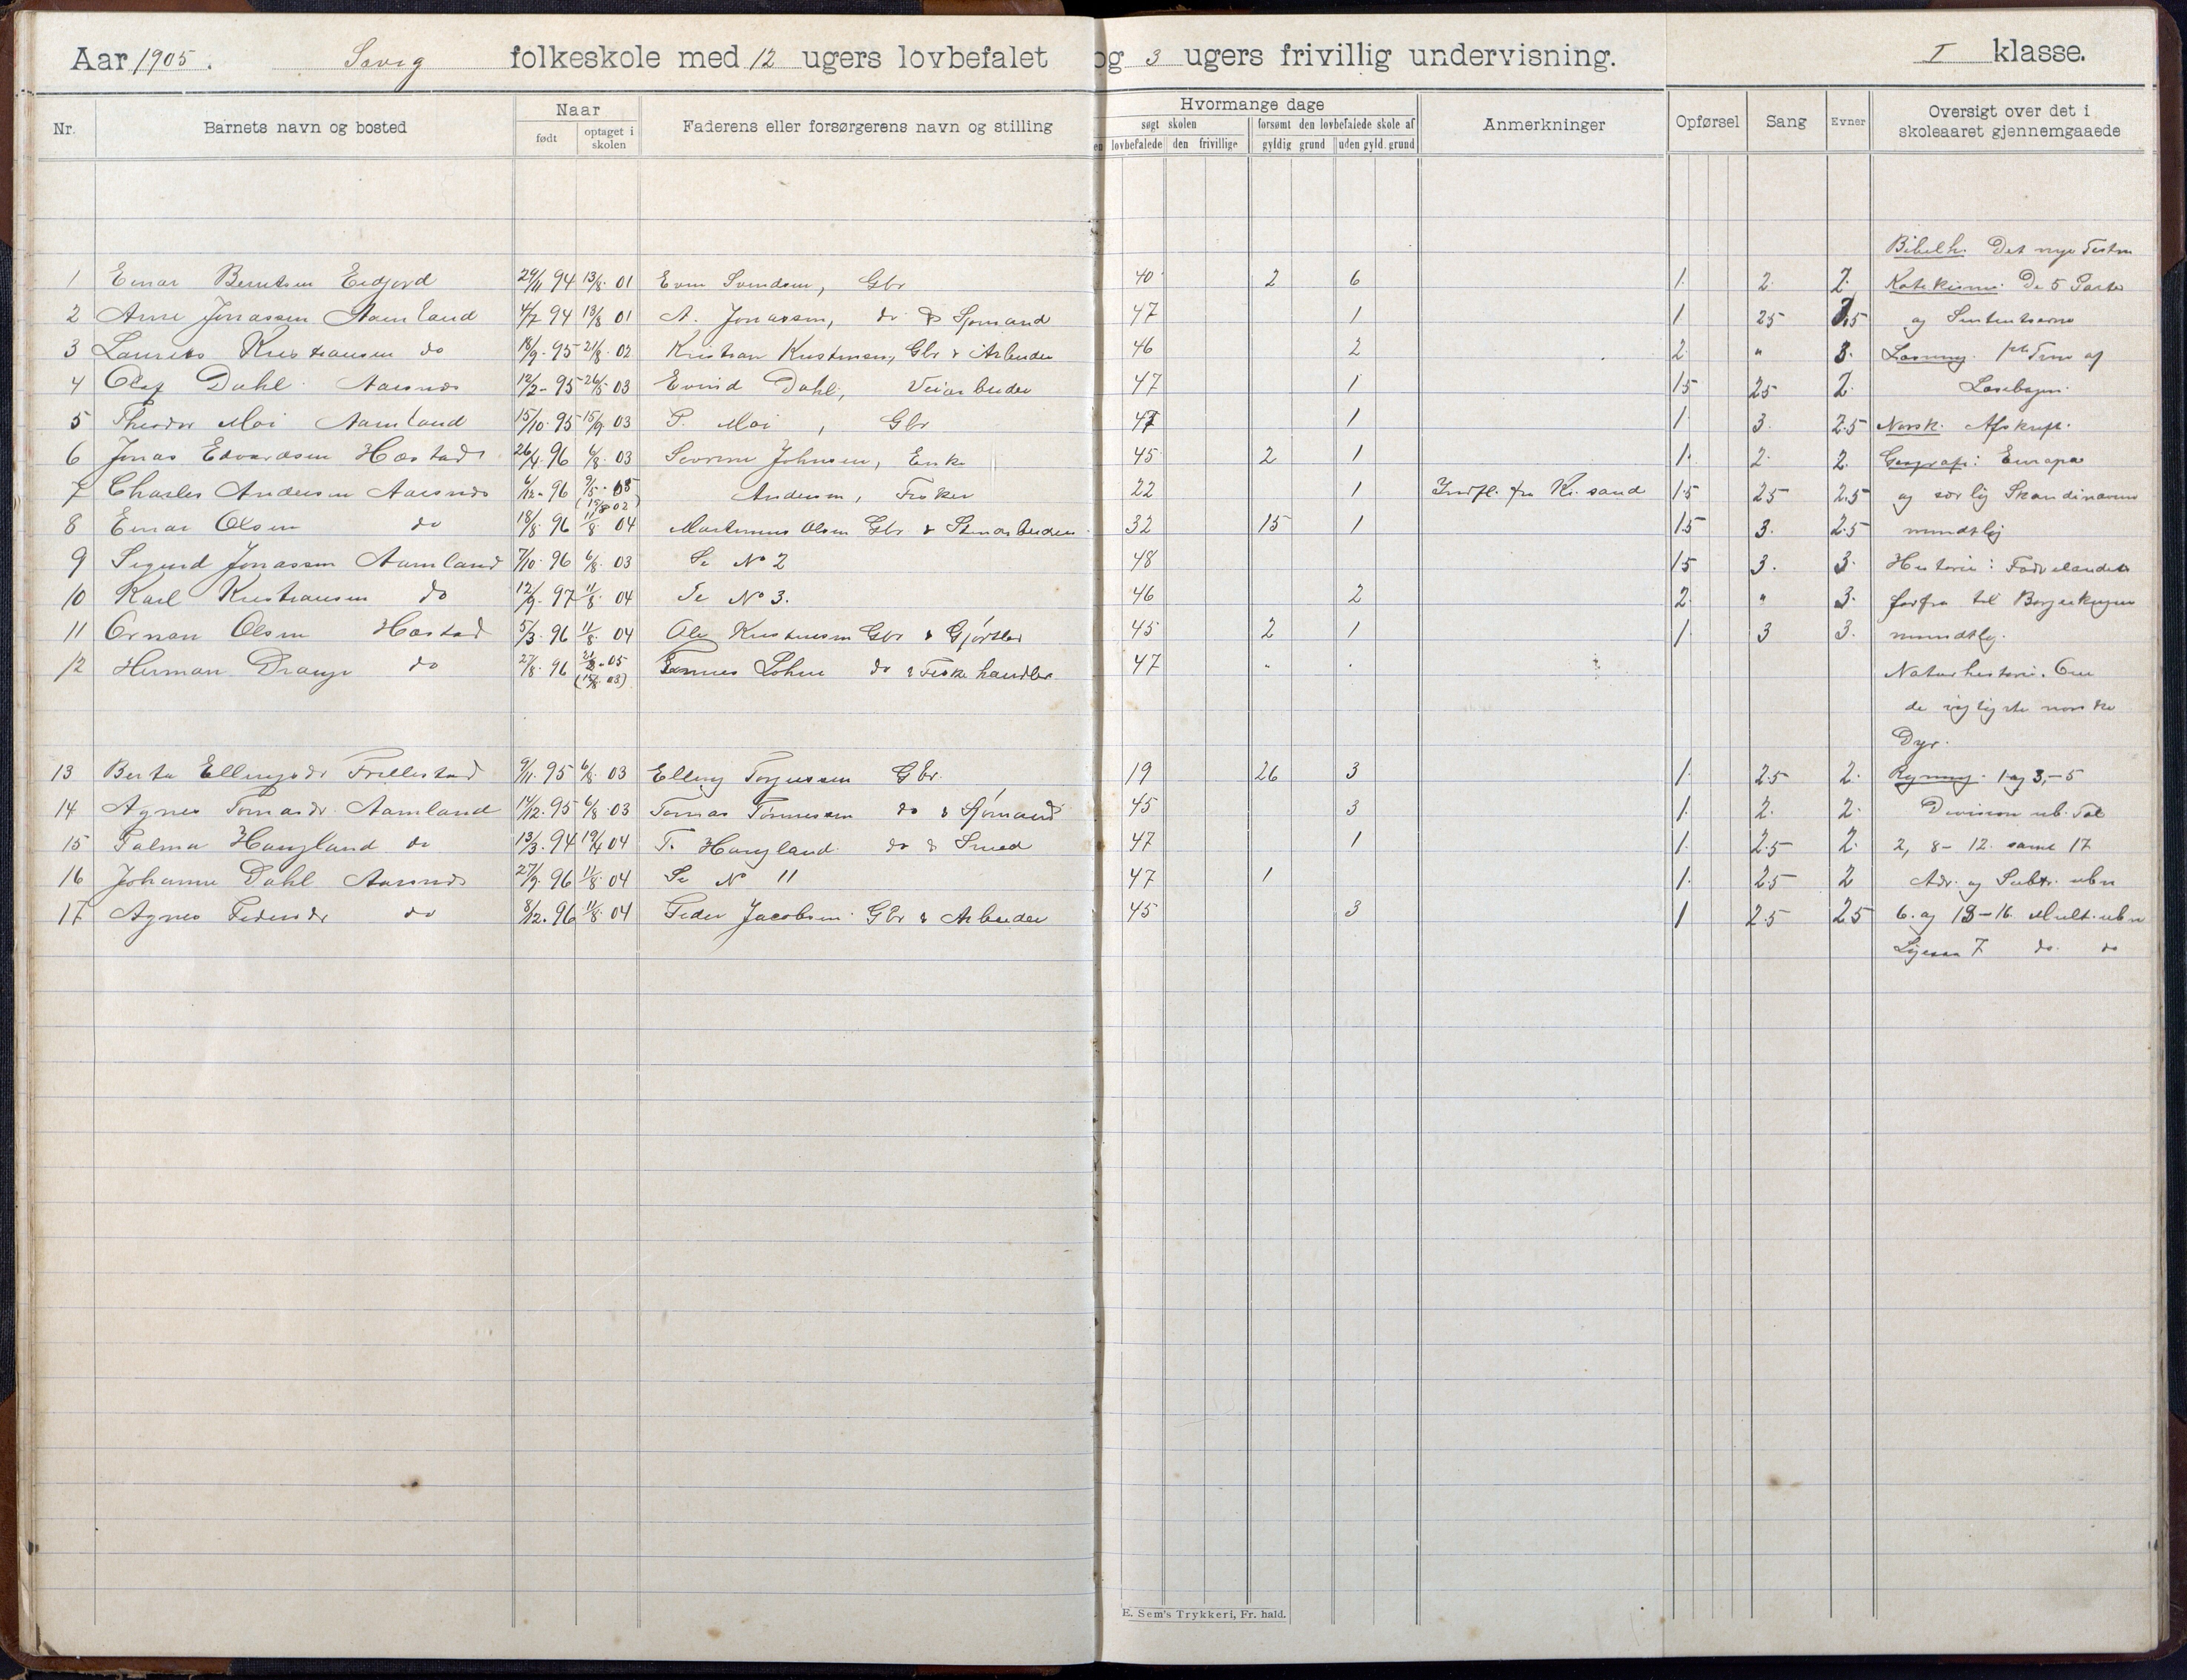 Aar 1905. Søvig folkeskole med 12 ugers lovbefalet og 3 ugers frivillig undervisning. I klasse.
Nr. Barnets navn og bosted Naar Faderens eller forsørgerens navn og stilling Hvormange dage Anmerkninger Opførsel Sang Evner Oversigt over det i skoleaaret gjennemgaaede
født optaget i skolen søgt skolen forsømt den lovbefalede skole af
lovbefalede den frivillige gyldig grund uden gyld. grund
Bibelh. Det nye Testm
1 Einar Berntsen Eidjord 29/11 94 13/8 01 Even Svendsen, Gbr 40 2 6 1. 2. 2. Katekisme. De 5 Parter
2 Arne Jonassen Aamland 4/7 94 13/8 01 A. Jonassen, do & Sjømand 47 1 1. 25 og
3 Laurits Kristiansen do 18/9-95 21/8-02 Kristian Kristensen, Gbr & Arbeider 46 2 2 " 3. Læsning. af
4 Olaf Dahl Aasnes 12/2-95 26/5 03 Evind Dahl, Veiarbeider 47 1 15 25 2. Læsebogen.
5 Theodor Moi Aamland 15/10-95 15/9 03 P. Moi, Gbr 47 1 1. 3. 2.5 Norsk. Afskrift.
6 Jonas Edvardsen Hæstad 26/4 96 6/8 03 Severine Johnsen, Enke 45 2 1 1. 2. 2. Geografi: Europa
7 Charles Andersen Aasnes 6/12-96 9/5-05 Andersen, Fisker 22 1 Indfl. fra Kr.sand 1.5 25 2.5 og særlig Skandinavien
8 Einar Olsen do 18/8 96 11/8 04 Martinius Olsen Gbr & Stenarbeider 32 15 1 1.5 3. 2.5 mundtlig
9 Sigurd Jonassen Aamland 7/10-96 6/8 03 Se No 2 48 15 3. 3. Historie: Fædrelandets
10 Karl Kristiansen do 12/9-97 11/8 04 Se No 3. 46 2 2. " 3. forfra til Borgerkrigene
11 Ornan Olsen Hæstad 5/3-96 11/8 04 Ole Kristensen Gbr & Gjørtler 45 2 1 1. 3 3. mundtlig.
12 Herman Drange do 27/8-96 (15/8 03) Tønnes Lohne do & Fiskehandler 47 " . Naturhistorie. Om
de vigtigste norske
Dyr.
13 Berta Ellingsdr Frillestad 9/11-95 6/8 03 Elling Torjussen Gbr. 19 26 3 1. 2.5 2. Regning. 1 og 3,-5
14 Agnes Tomasdr. Aamland 14/12-95 6/8 03 Tomas Tønnessen do & Sjømand 45 3 1. 2. 2. Division ub. Tal
15 Palma Haugland do 13/3-94 19/4 04 T. Haugland do & Smed 47 1 1. 2.5 2. 2, 8-12 samt 17
16 Johanne Dahl Aasnes 27/9-96 11/8 04 Se N 11 47 1 1. 25 2 Adr. og Subtr. ubn
17 Agnes Pedersdr do 8/12-96 11/8 04 Peder Jacobsen Gbr & Arbeider 45 3 1 2.5 25 6. og 13-16. Mult. ubn
Ligesaa 7 do do
E. Sem's Trykkeri, Fr. hald.